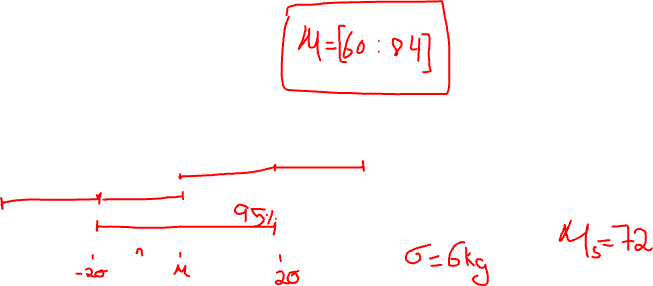 M=[60:84]
95%
-2σ μ 2σ
σ=6kg
Ms=72